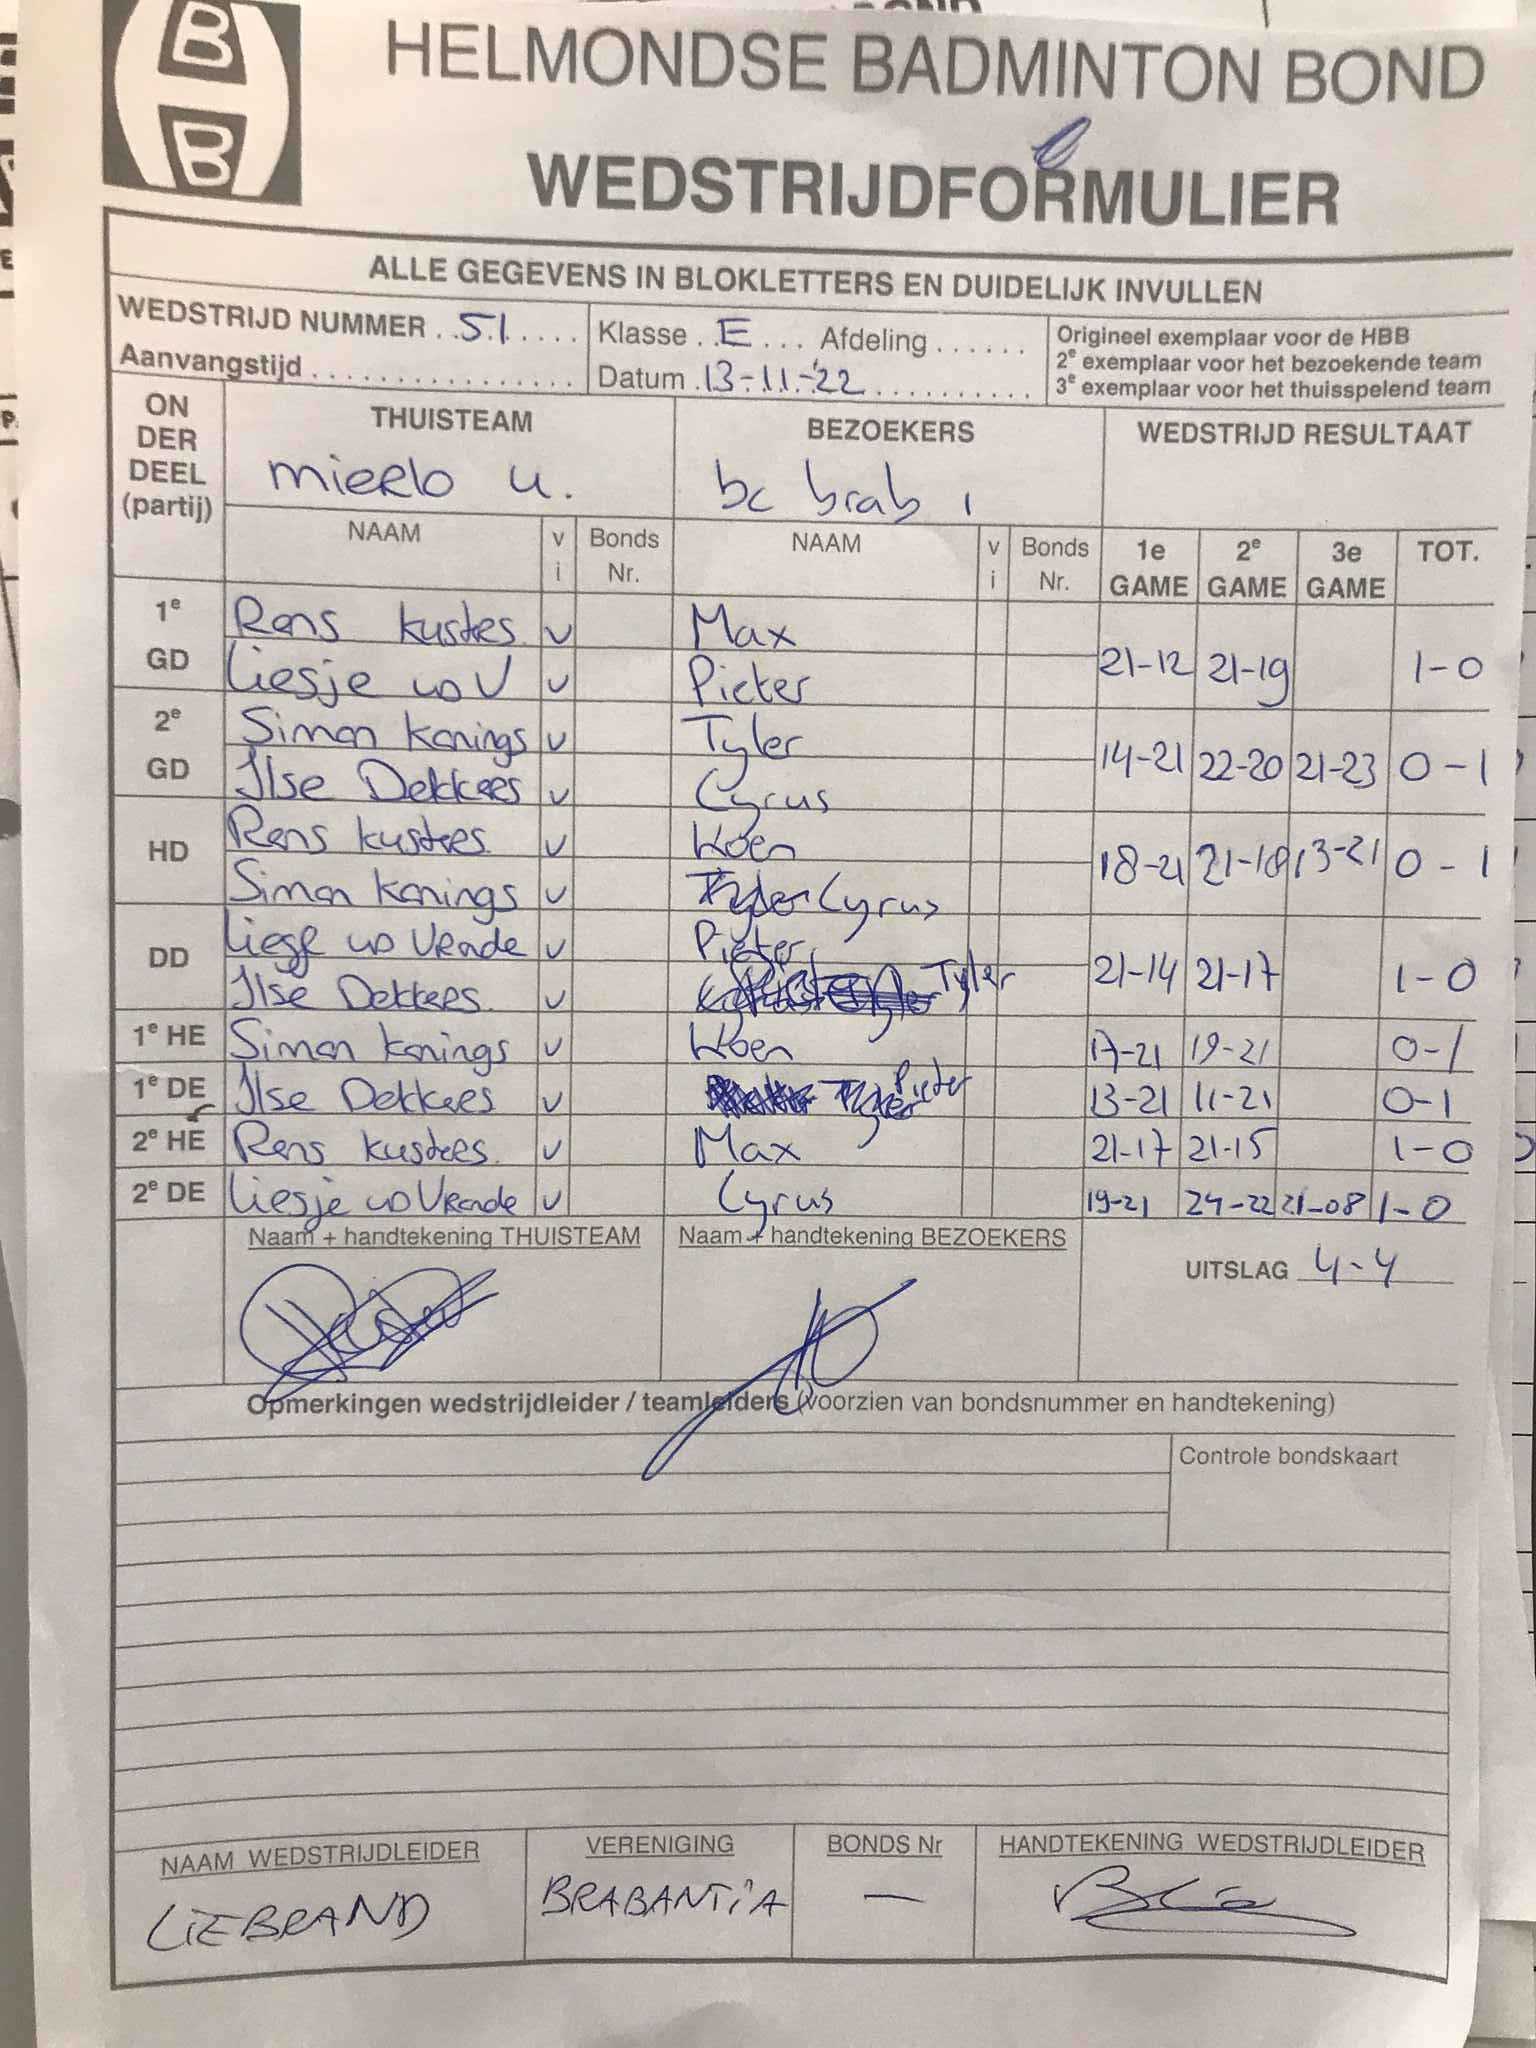 B
B
HELMONDSE BADMINTON BOND
WEDSTRIJDFORMULIER
ALLE GEGEVENS IN BLOKLETTERS EN DUIDELIJK INVULLEN
WEDSTRIJD NUMMER . . 51 . . . . . Klasse . . E . . . Afdeling . . . . . . Origineel exemplaar voor de HBB
2e exemplaar voor het bezoekende team
Aanvangstijd . . . . . . . . . . . . . . . . Datum . 13-11-'22 . . . . . . . . . . 3e exemplaar voor het thuisspelend team
ON DER DEEL (partij) THUISTEAM BEZOEKERS WEDSTRIJD RESULTAAT
mierlo 4. bc brab 1
NAAM vi Bonds Nr. NAAM vi Bonds Nr. 1e GAME 2e GAME 3e GAME TOT.
1e GD Rens kusters v Max
Liesje vd V v Pieter 21-12 21-19 1-0
2e GD Simon Konings v Tyler
Ilse Dekkers v Cyrus 14-21 22-20 21-23 0-1
HD Rens kusters v Koen
Simon Konings v Cyrus 18-21 21-18 13-21 0-1
DD vd Vrande v Pieter
Ilse Dekkers v Tyler 21-14 21-17 1-0
1e HE Simon Konings v Koen 17-21 19-21 0-1
1e DE Ilse Dekkers v Pieter 13-21 11-21 0-1
2e HE Rens kusters v Max 21-17 21-15 1-0
2e DE Liesje vd Vrande v Cyrus 19-21 24-22 21-08 1-0
Naam + handtekening THUISTEAM Naam + handtekening BEZOEKERS UITSLAG 4-4
Opmerkingen wedstrijdleider / teamleiders (voorzien van bondsnummer en handtekening)
Controle bondskaart
NAAM WEDSTRIJDLEIDER VERENIGING BONDS Nr HANDTEKENING WEDSTRIJDLEIDER
LIEBRAND BRABANTIA —